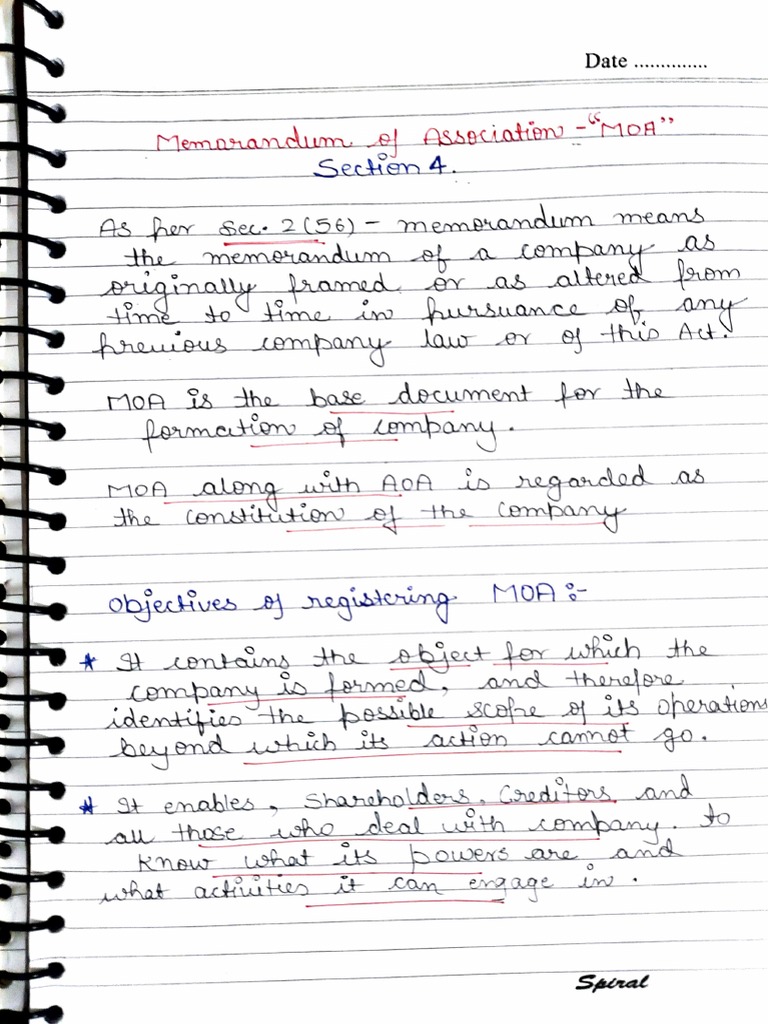 Date ..............
Memorandum of Association - "MOA"
Section 4.
As per Sec. 2(56) - memorandum means
the memorandum of a company as
originally framed or as altered from
time to time in pursuance of any
previous company law or of this Act.
MOA is the base document for the
formation of company.
MOA along with AOA is regarded as
the constitution of the company
Objectives of registering MOA :-
* It contains the object for which the
company is formed, and therefore
identifies the possible scope of its operations
beyond which its action cannot go.
* It enables, Shareholders, Creditors and
all those who deal with company. to
know what its powers are and
what activities it can engage in.
Spiral